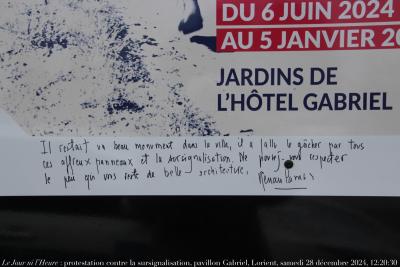 DU 6 JUIN 2024
AU 5 JANVIER 20
JARDINS DE
L'HÔTEL GABRIEL
Il restait un beau monument dans la ville, il a fallu le gâcher par tous
ces affreux panneaux et la sursignalisation. Ne pouviez-vous respecter
le peu qui vous reste de belle architecture.
Le Jour ni l'Heure : protestation contre la sursignalisation, pavillon Gabriel, Lorient, samedi 28 décembre 2024, 12:20:30